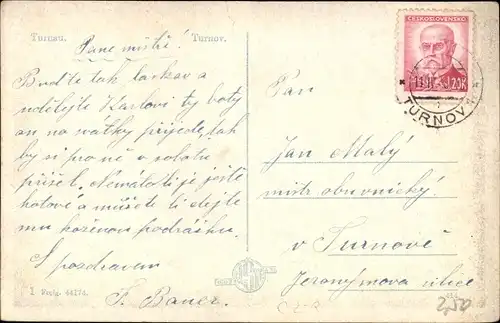 Turnau.
Turnov.
Pane mistře!
Buďte tak laskav a
udělejte Karlovi ty boty
on na svátky přijede, tak
by si pro ně v sobotu
přišel. Nemáte-li je ještě
hotové a můžete-li dejte
mu koženou podrážku.
S pozdravem
F. Bauer.
Pan
Jan Malý
mistr obuvnický
v Turnově
Jeronýmova ulice
ČESKOSLOVENSKO
1.20K
TURNOV
2,50